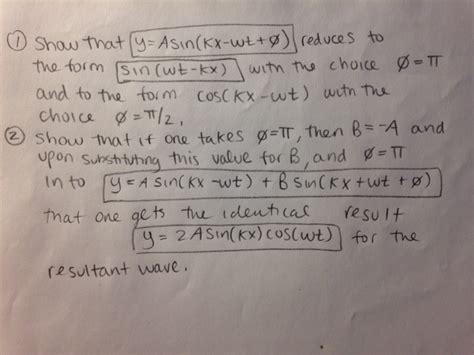 ① Show that y=Asin(Kx-wt+ø) reduces to
the form sin(wt-kx) with the choice ø=π
and to the form cos(Kx-wt) with the
choice ø=π/2,
② Show that if one takes ø=π, then B=-A and
upon substituting this value for B, and ø=π
in to y=A sin(kx-wt) + B sin(kx+wt+ø)
that one gets the identical result
y = 2Asin(kx)cos(wt) for the
resultant wave.